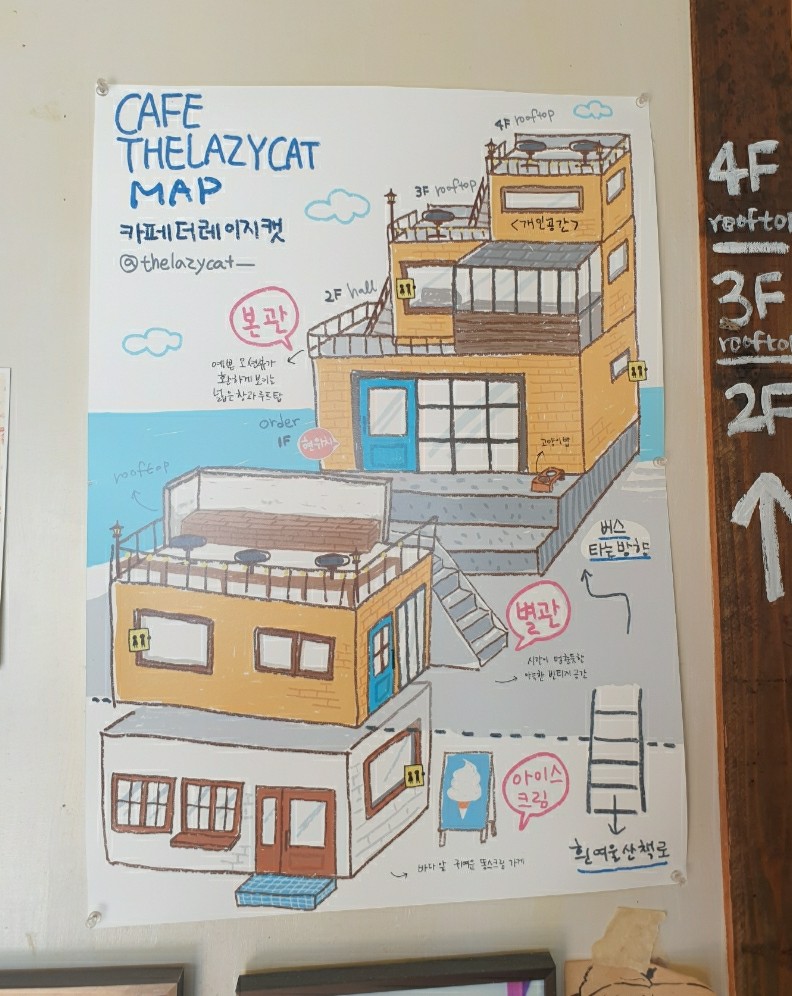 CAFE
THELAZYCAT
MAP
카페더레이지캣
@thelazycat_
4F rooftop
3F rooftop
<개인공간>
2F hall
본관
예쁜 오션뷰가
황홀하게 보이는
넓은 창과 루프탑
order
1F
현위치
고양이밥
rooftop
버스
타는방향
별관
시간이 멈춘듯한
아늑한 빈티지 공간
아이스
크림
바다 앞 귀여운 아이스크림 가게
흰여울산책로
4F
rooftop
3F
rooftop
2F